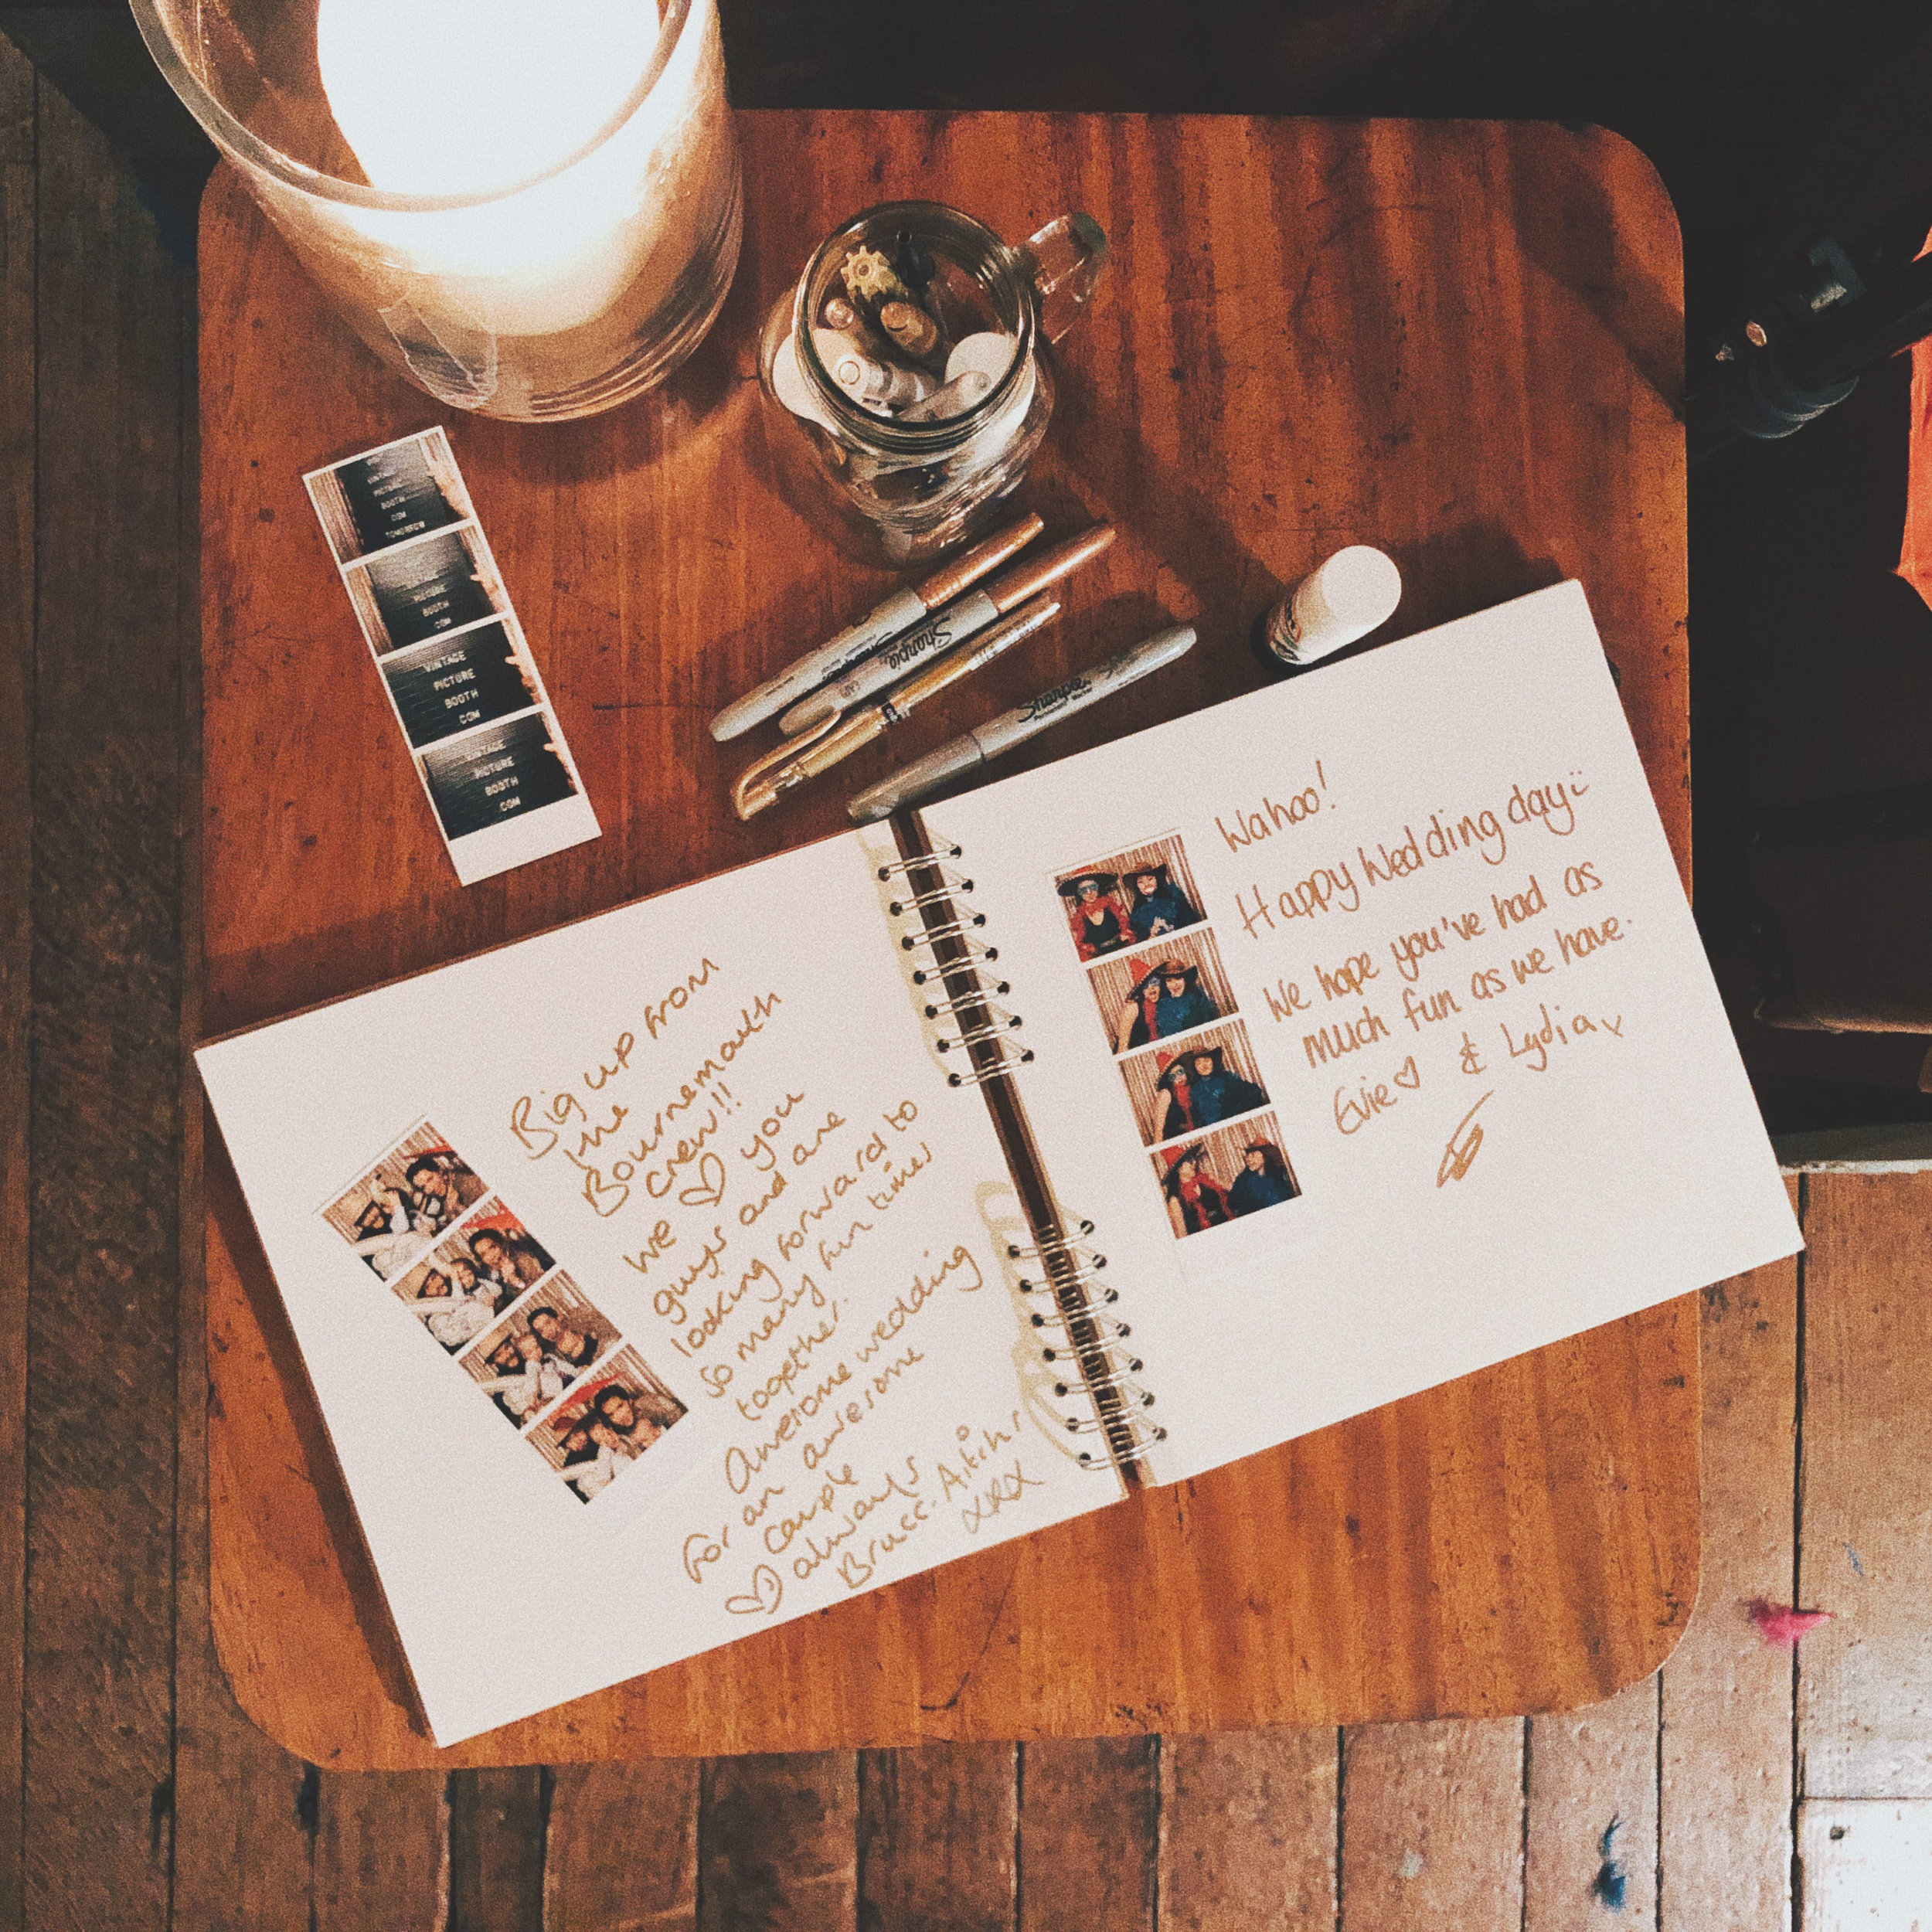 VINTAGE
PICTURE
BOOTH
.COM
TOMORROW
PICTURE
BOOTH
.COM
VINTAGE
PICTURE
BOOTH
.COM
VINTAGE
PICTURE
BOOTH
.COM
Sharpie
Sharpie
Big up from
the
Bournemouth
crew!!
We ♡ you
guys and are
looking forward to
so many fun times
together.
Awesome wedding
for an awesome
couple
♡ always
Bruce.
xxx
Wahoo!
Happy Wedding day :)
We hope you've had as
much fun as we have.
Evie ♡ & Lydia x